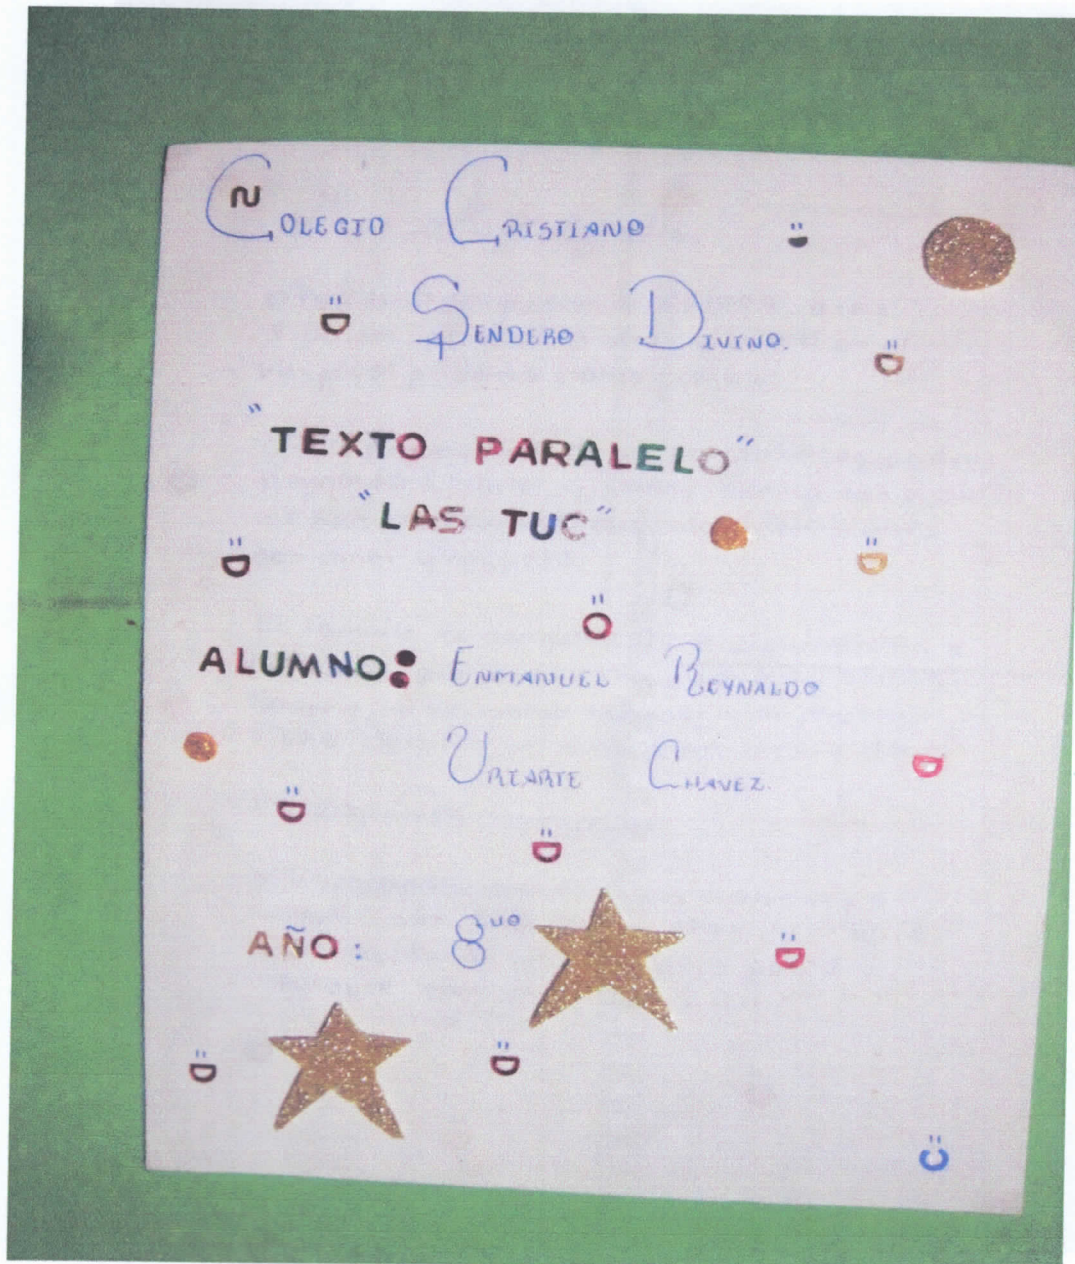 COLEGIO CRISTIANO
SENDERO DIVINO.
"TEXTO PARALELO"
"LAS TUC"
ALUMNO: ENMANUEL REYNALDO
URIARTE CHAVEZ.
AÑO: 8vo